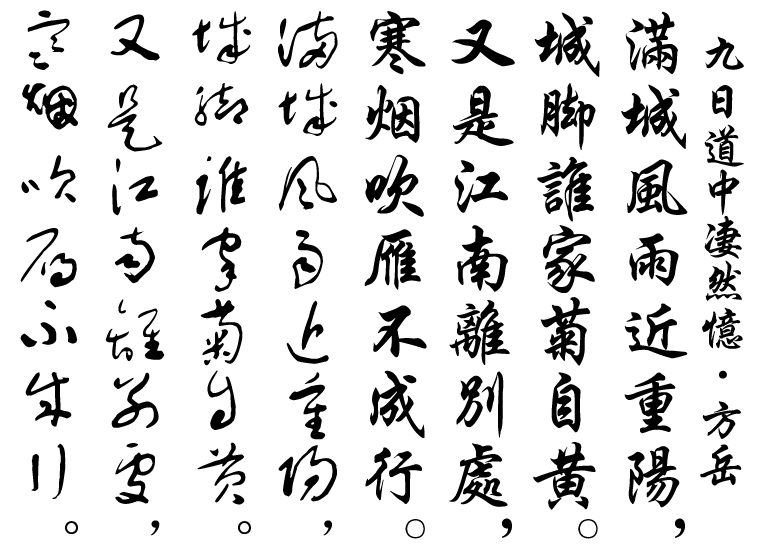 九日道中淒然憶·方岳
滿城風雨近重陽，
城脚誰家菊自黄。
又是江南離別處，
寒烟吹雁不成行。
满城风雨近重陽，
城脚誰家菊自黄。
又是江南離别處，
寒烟吹雁不成行。